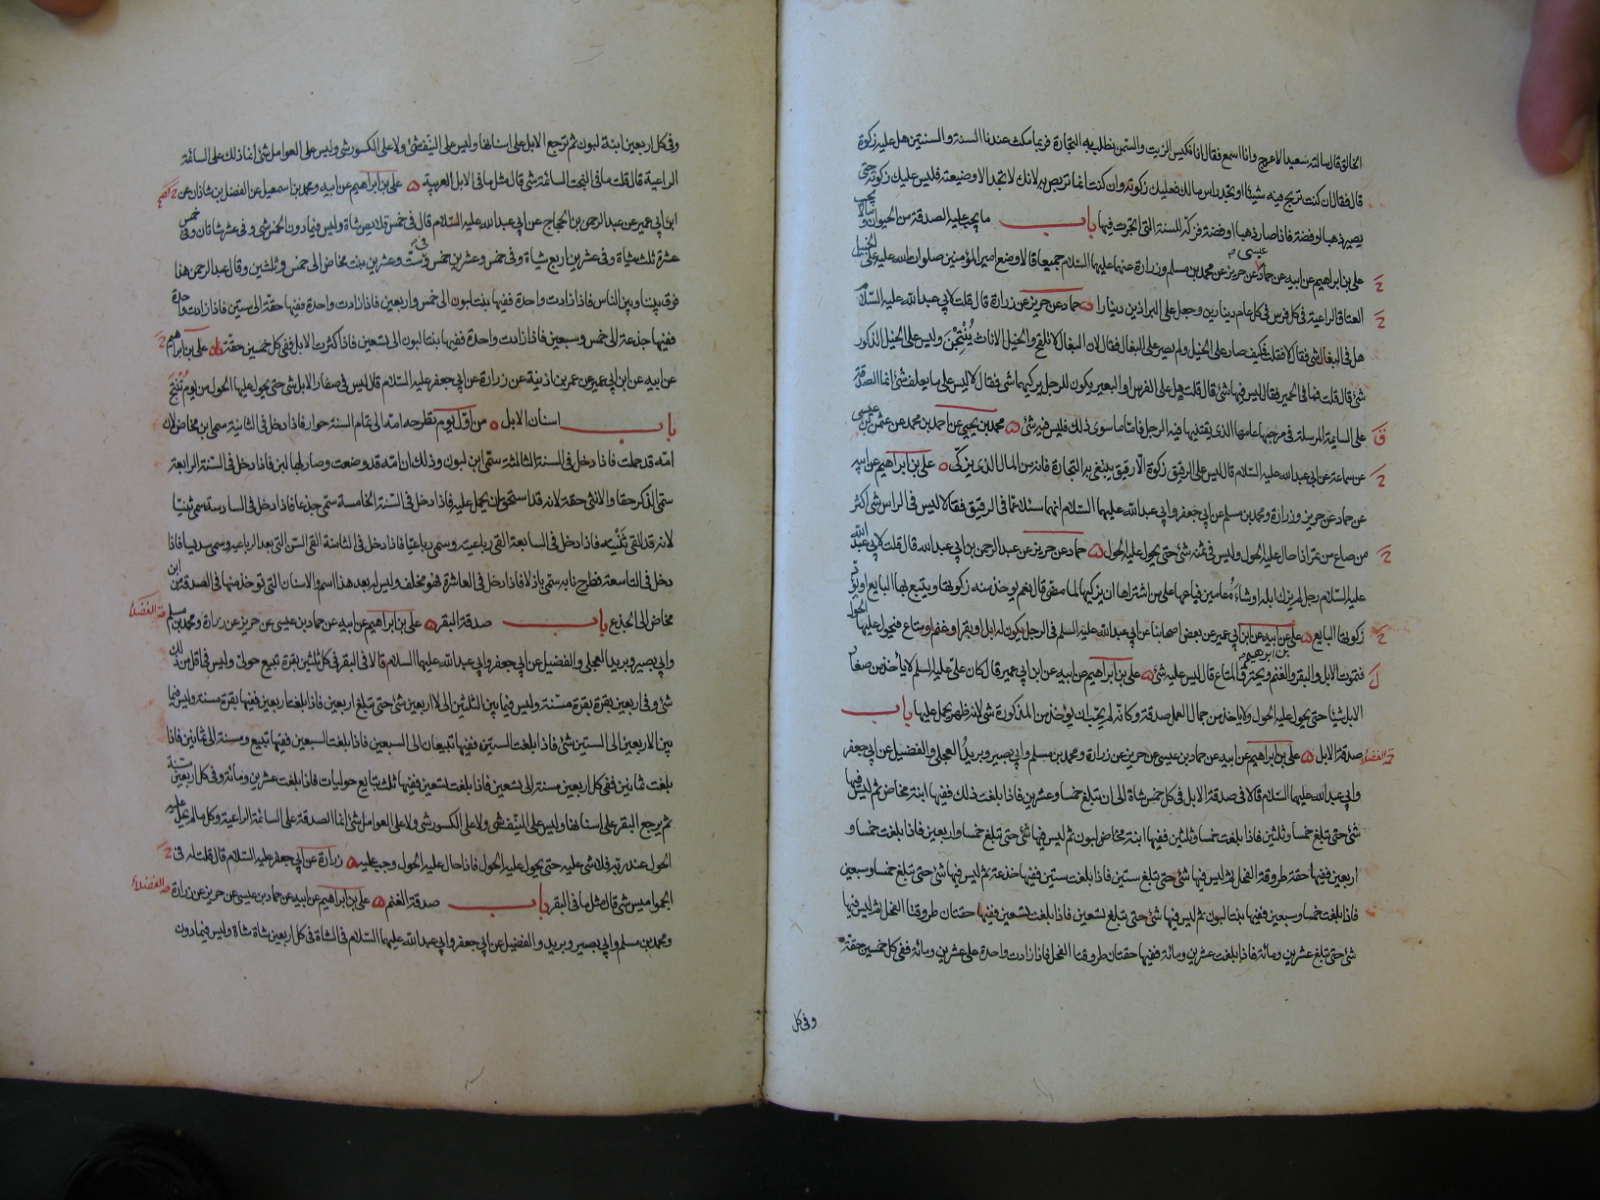 الخالق قال سالته سعيد الاعرج وانا اسمع فقال انا نكبس الزيت والسمن نطلب به التجارة فربما مكث عندنا السنة والسنتين هل عليه زكوة
قال فقال ان كنت تربح فيه شيئا او تجد راس مالك فعليك زكوته وان كنت انما تربص به لانك لا تجد الا وضيعة فليس عليك زكوته حتى
يصير ذهبا او فضة فاذا صار ذهبا او فضة فزكه للسنة التى اتجرت فيها باب ما يجب عليه الصدقة من الحيوان وما لا يجب
على بن ابراهيم عن ابيه عن حماد بن عيسى عن حريز عن محمد بن مسلم وزرارة عنهما عليهما السلام جميعا قالا وضع امير المؤمنين صلوات الله عليه على الخيل
العتاق الراعية فى كل فرس فى كل عام دينارين وجعل على البراذين دينارا ه حماد عن حريز عن زرارة قال قلت لابى عبد الله عليه السلام
هل فى البغال شئ فقال لا فقلت فكيف صار على الخيل ولم يصر على البغال فقال لان البغال لا تلقح والخيل الاناث يُنْتَجْنَ وليس على الخيل الذكور
شئ قال قلت فما فى الحمير فقال ليس فيها شئ قال قلت هل على الفرس او البعير يكون للرجل يركبهما شئ فقال لا ليس على ما يعلف شئ انما الصدقة
على السايمة المرسلة فى مرجها عامها الذى يقتنيها فيه الرجل فاما ما سوى ذلك فليس فيه شئ ه محمد بن يحيى عن احمد بن محمد عن عثمن بن عيسى
عن سماعة عن ابى عبد الله عليه السلام قال ليس على الرقيق زكوة الا رقيق يبتغى به التجارة فانه من المال الذى يزكّى ه على بن ابراهيم عن ابيه
عن حماد عن حريز عن زرارة ومحمد بن مسلم عن ابى جعفر وابى عبد الله عليهما السلام انهما سئلا عما فى الرقيق فقالا ليس فى الراس شئ اكثر
من صاع من تمر اذا حال عليه الحول وليس فى ثمنه شئ حتى يحول عليه الحول ه حماد عن حريز عن عبد الرحمن بن ابى عبد الله قال قلت لابى عبد الله
عليه السلام رجل لم يزك ابله او شاءه عامين فباعها على من اشتراها ان يزكيها لما مضى قال نعم يوخذ منه زكوتها ويتبع بها البايع او يؤدى
زكوتها البايع ه على عن ابيه عن ابن ابى عمير عن بعض اصحابنا عن ابى عبد الله عليه السلم فى الرجل يكون له ابل او بقر او غنم او متاع فيحول عليها الحول
فتموت الابل والبقر والغنم ويحترق المتاع قال ليس عليه شئ ه على بن ابراهيم عن ابيه عن ابن ابى عمير قال كان على عليه السلم لا ياخذ من صغار
الابل شيئا حتى يحول عليه الحول ولا ياخذ من جمال العمل صدقة وكانه لم يحب ان يؤخذ من الذكورة شئ لانه ظهر يحمل عليها باب
صدقة الابل ه على بن ابراهيم عن ابيه عن حماد بن عيسى عن حريز عن زرارة ومحمد بن مسلم وابى بصير وبريد العجلى والفضيل عن ابى جعفر
وابى عبد الله عليهما السلام قالا فى صدقة الابل فى كل خمس شاة الى ان تبلغ خمسا وعشرين فاذا بلغت ذلك ففيها ابنة مخاض ثم ليس فيها
شئ حتى تبلغ خمسا وثلثين فاذا بلغت خمسا وثلثين ففيها ابنة لبون ثم ليس فيها شئ حتى تبلغ خمسا واربعين فاذا بلغت خمسا و
اربعين ففيها حقة طروقة الفحل ثم ليس فيها شئ حتى تبلغ ستين فاذا بلغت ستين ففيها جذعة ثم ليس فيها شئ حتى تبلغ خمسا وسبعين
فاذا بلغت خمسا وسبعين ففيها بنتا لبون ثم ليس فيها شئ حتى تبلغ تسعين فاذا بلغت تسعين ففيها حقتان طروقتا الفحل ثم ليس فيها
شئ حتى تبلغ عشرين ومائة فاذا بلغت عشرين ومائة ففيها حقتان طروقتا الفحل فاذا زادت واحدة على عشرين ومائة ففى كل خمسين حقة
وفى كل
وفى كل اربعين ابنة لبون ثم ترجع الابل على اسنانها وليس على النيف شئ ولا على الكسور شئ وليس على العوامل شئ انما ذلك على السائمة
الراعية قال قلت ما فى البخت السائمة شئ قال مثل ما فى الابل العربية ه على بن ابراهيم عن ابيه ومحمد بن اسمعيل عن الفضل بن شاذان عن
ابن ابى عمير عن عبد الرحمن بن الحجاج عن ابى عبد الله عليه السلام قال فى خمس قلايص شاة وليس فيما دون الخمس شئ وفى عشر شاتان وفى خمس
عشرة ثلث شياة وفى عشرين اربع شياة وفى خمس وعشرين خمس وفى ست وعشرين بنت مخاض الى خمس وثلثين وقال عبد الرحمن هذا
فرق بيننا وبين الناس فاذا زادت واحدة ففيها بنت لبون الى خمس واربعين فاذا زادت واحدة ففيها حقة الى ستين فاذا زادت واحدة
ففيها جذعة الى خمس وسبعين فاذا زادت واحدة ففيها بنتا لبون الى تسعين فاذا كثرت الابل ففى كل خمسين حقة ه على بن ابراهيم
عن ابيه عن ابن ابى عمير عن عمر بن اذينة عن زرارة عن ابى جعفر عليه السلام قال ليس فى صغار الابل شئ حتى يحول عليها الحول من يوم تُنْتَجُ
باب اسنان الابل ه من اول يوم تطرحه امه الى تمام السنة حوار فاذا دخل فى الثانية سمى ابن مخاض لان
امه قد حملت فاذا دخل فى السنة الثالثة سمى ابن لبون وذلك ان امه قد وضعت وصار لها لبن فاذا دخل فى السنة الرابعة
سمى الذكر حقا والانثى حقة لانه قد استحق ان يحمل عليه فاذا دخل فى السنة الخامسة سمى جذعا فاذا دخل فى السادسة سمى ثنيا
لانه قد القى ثنيته فاذا دخل فى السابعة القى رباعيته وسمى رباعيا فاذا دخل فى الثامنة القى السن التى بعد الرباعيه وسمى سديسا فاذا
دخل فى التاسعة فطرح نابه سمى بازلا فاذا دخل فى العاشرة فهو مخلف وليس له بعد هذا اسم والاسنان التى توخذ منها فى الصدقة من ابن
مخاض الى الجذع باب صدقة البقر ه على بن ابراهيم عن ابيه عن حماد بن عيسى عن حريز عن زرارة ومحمد بن مسلم
وابى بصير وبريد العجلى والفضيل عن ابى جعفر وابى عبد الله عليهما السلام قالا فى البقر فى كل ثلثين بقرة تبيع حولى وليس فى اقل من ذلك
شئ وفى اربعين بقرة بقرة مسنة وليس فيما بين الثلثين الى الاربعين شئ حتى تبلغ اربعين فاذا بلغت اربعين ففيها بقرة مسنة وليس فيما
بين الاربعين الى الستين شئ فاذا بلغت الستين ففيها تبيعان الى السبعين فاذا بلغت السبعين ففيها تبيع ومسنة الى ثمانين فاذا
بلغت ثمانين ففى كل اربعين مسنة الى تسعين فاذا بلغت تسعين ففيها ثلث تبايع حوليات فاذا بلغت عشرين ومائة وفى كل اربعين مسنة
ثم يرجع البقر على اسنانها وليس على النيف شئ ولا على الكسور شئ ولا على العوامل شئ انما الصدقة على السائمة الراعية وكل ما لم يحل عليه
الحول عند ربه فلا شئ عليه حتى يحول عليه الحول فاذا حال عليه الحول وجب عليه ه زرارة عن ابى جعفر عليه السلام قال قلت له فى
الجواميس شئ قال مثل ما فى البقر باب صدقة الغنم ه على بن ابراهيم عن ابيه عن حماد بن عيسى عن حريز عن زرارة
ومحمد بن مسلم وابى بصير وبريد والفضيل عن ابى جعفر وابى عبد الله عليهما السلام فى الشاة فى كل اربعين شاة شاة وليس فيما دون